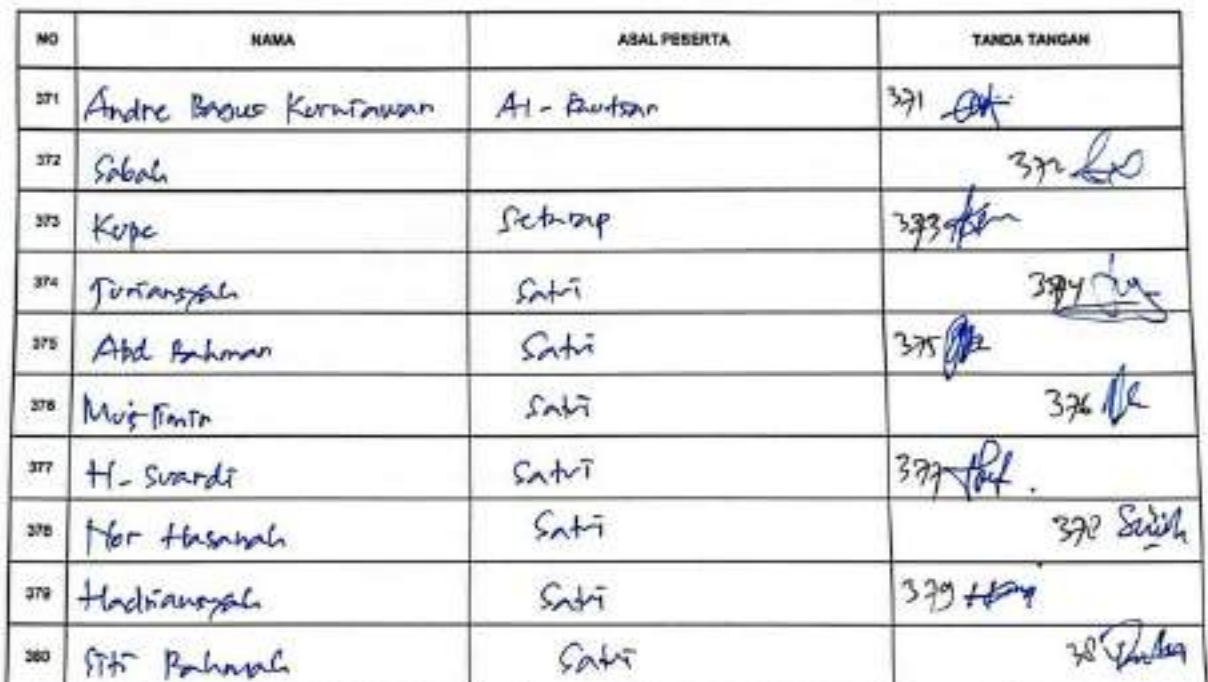 NO NAMA ASAL PESERTA TANDA TANGAN
371 Andre Bagus Kurniawan Al- 371
372 Sabah 372
373 Kupe Setarap 373
374 Juriansyah Satui 374
375 Abd Rahman Satui 375
376 Mustimin Satui 376
377 H. Suardi Satui 377
378 Nor Hasanah Satui 378
379 Hadriansyah Satui 379
380 Siti Rahmah Satui 38